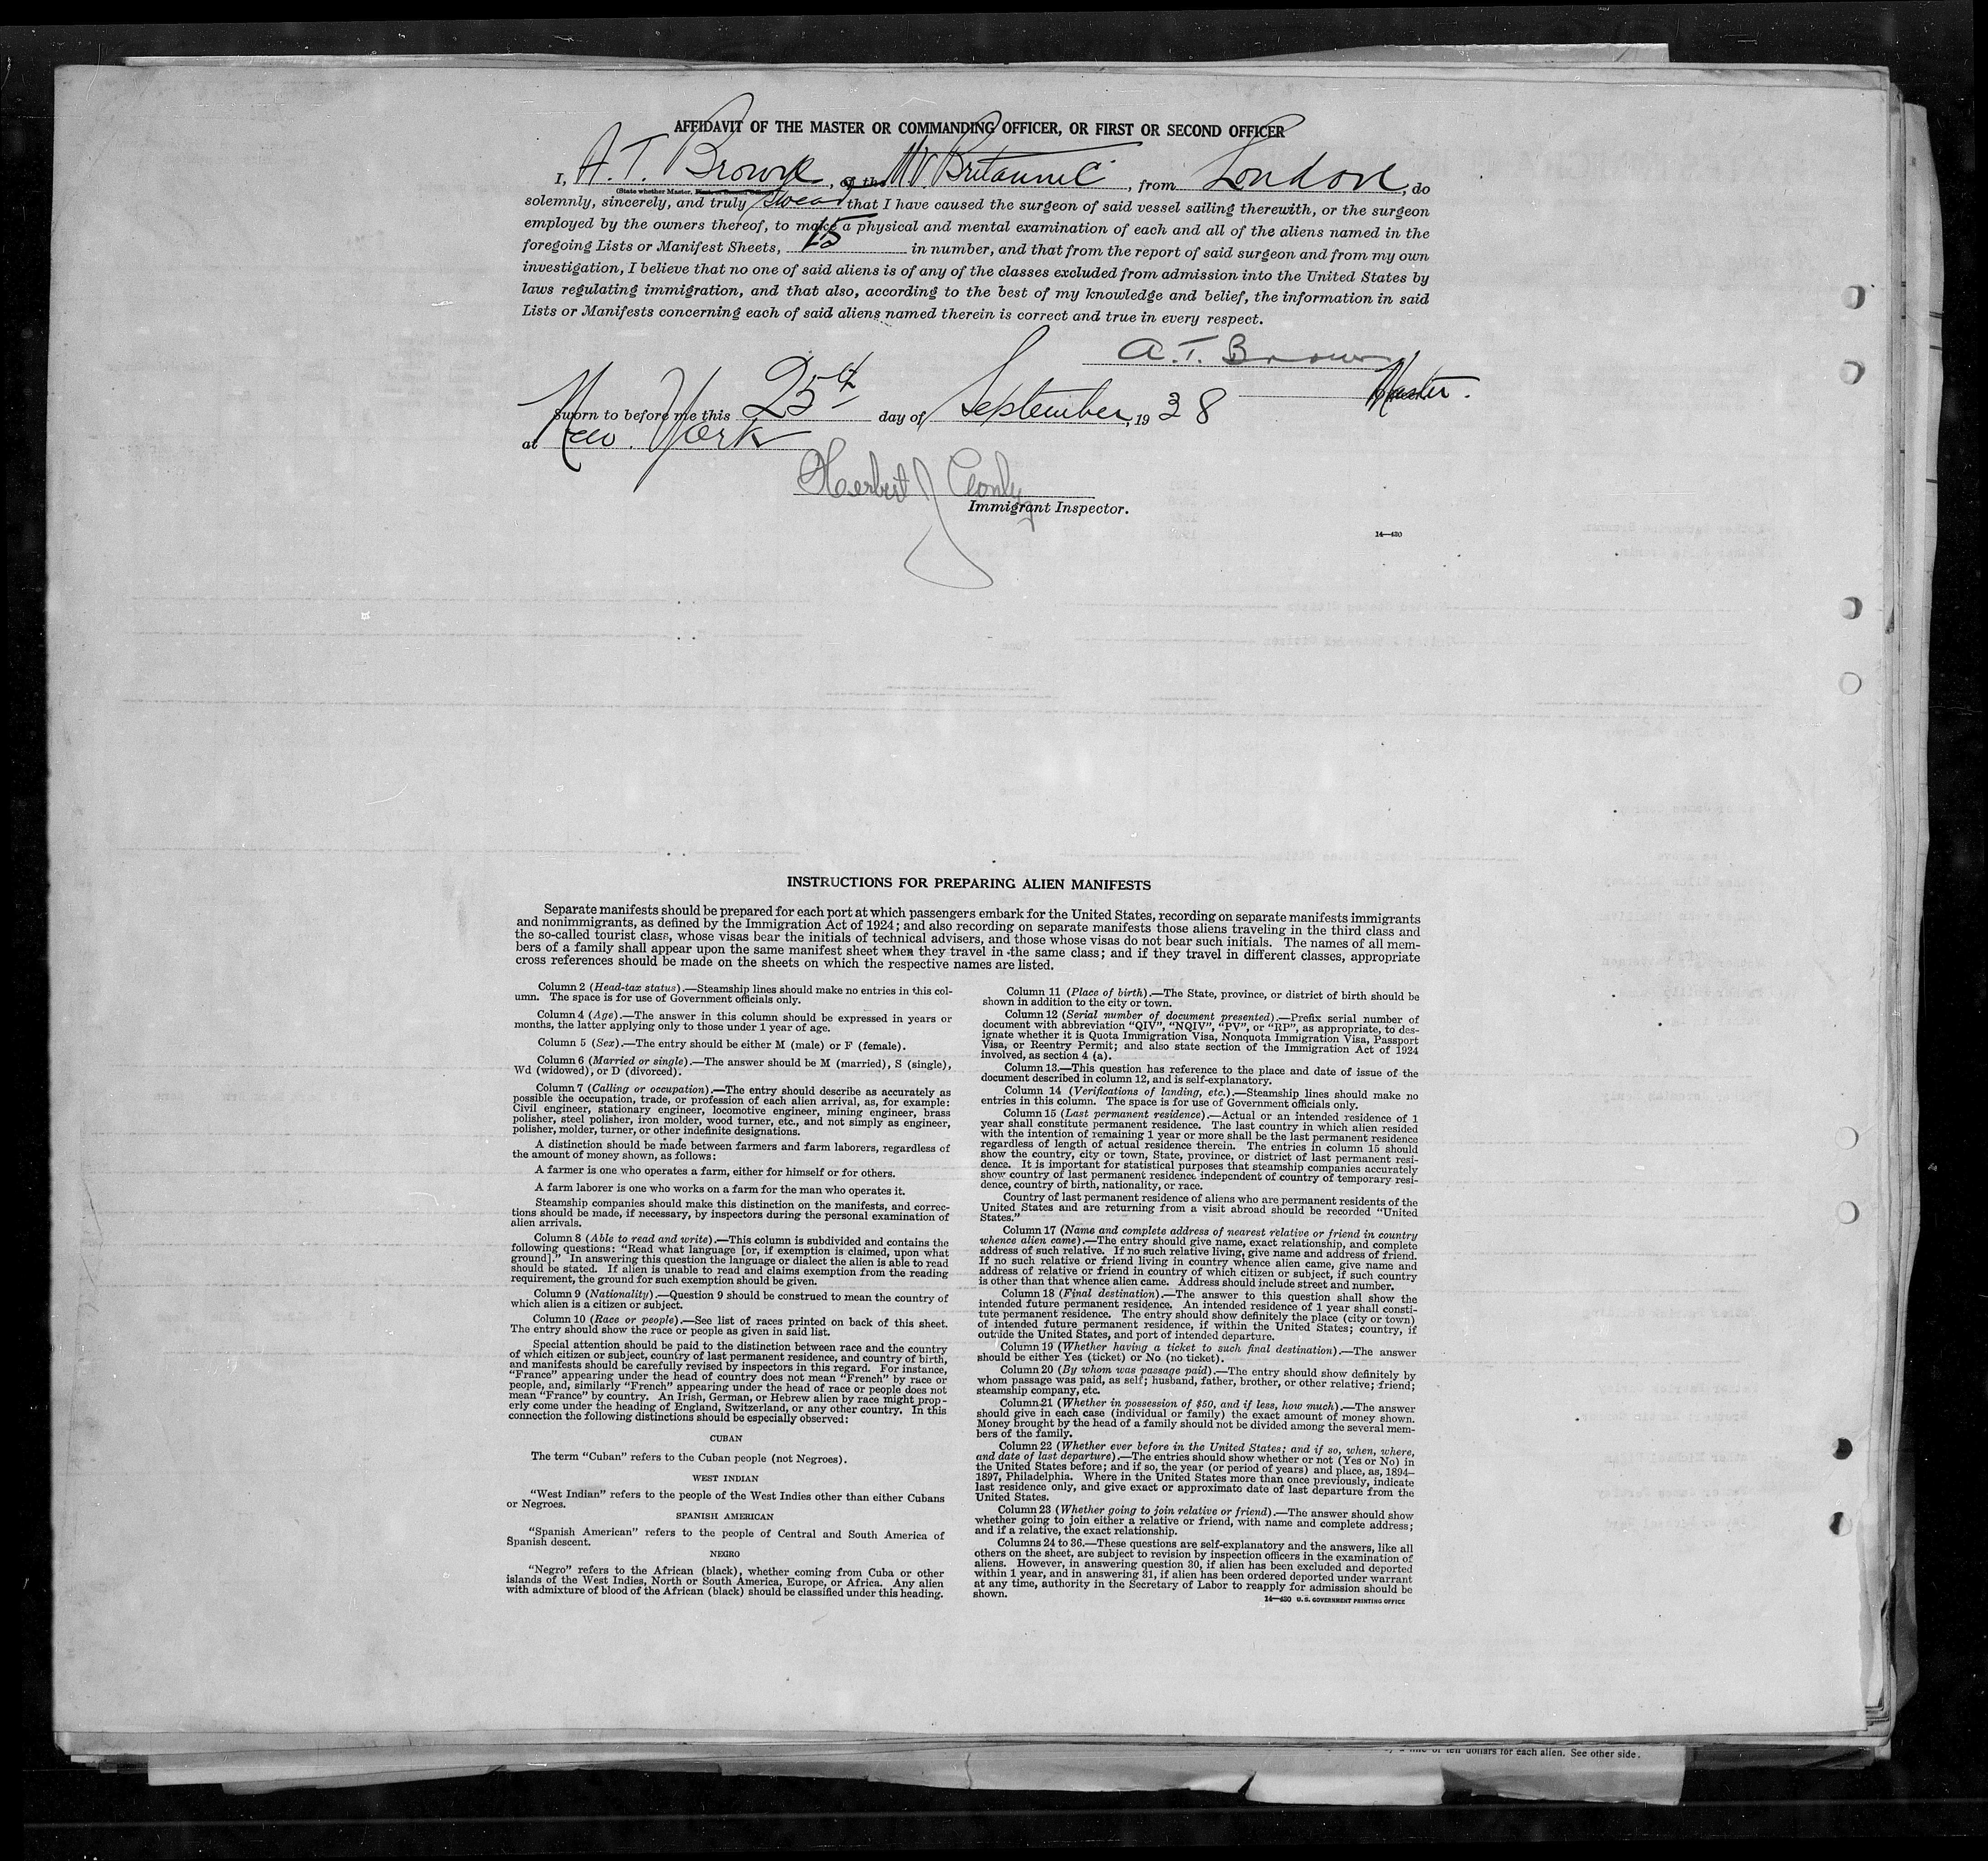 AFFIDAVIT OF THE MASTER OR COMMANDING OFFICER, OR FIRST OR SECOND OFFICER
I, A. T. Brown, of the MV Britannic, from London, do
(State whether Master, First, or Second Officer)
solemnly, sincerely, and truly swear that I have caused the surgeon of said vessel sailing therewith, or the surgeon
employed by the owners thereof, to make a physical and mental examination of each and all of the aliens named in the
foregoing Lists or Manifest Sheets, 15 in number, and that from the report of said surgeon and from my own
investigation, I believe that no one of said aliens is of any of the classes excluded from admission into the United States by
laws regulating immigration, and that also, according to the best of my knowledge and belief, the information in said
Lists or Manifests concerning each of said aliens named therein is correct and true in every respect.
A. T. Brown
Master.
Sworn to before me this 25th day of September, 1938
at New York
Herbert J
Immigrant Inspector.
14—430
INSTRUCTIONS FOR PREPARING ALIEN MANIFESTS
Separate manifests should be prepared for each port at which passengers embark for the United States, recording on separate manifests immigrants
and nonimmigrants, as defined by the Immigration Act of 1924; and also recording on separate manifests those aliens traveling in the third class and
the so-called tourist class, whose visas bear the initials of technical advisers, and those whose visas do not bear such initials. The names of all mem-
bers of a family shall appear upon the same manifest sheet when they travel in the same class; and if they travel in different classes, appropriate
cross references should be made on the sheets on which the respective names are listed.
Column 2 (Head-tax status).—Steamship lines should make no entries in this col-
umn. The space is for use of Government officials only.
Column 4 (Age).—The answer in this column should be expressed in years or
months, the latter applying only to those under 1 year of age.
Column 5 (Sex).—The entry should be either M (male) or F (female).
Column 6 (Married or single).—The answer should be M (married), S (single),
Wd (widowed), or D (divorced).
Column 7 (Calling or occupation).—The entry should describe as accurately as
possible the occupation, trade, or profession of each alien arrival, as, for example:
Civil engineer, stationary engineer, locomotive engineer, mining engineer, brass
polisher, steel polisher, iron molder, wood turner, etc., and not simply as engineer,
polisher, molder, turner, or other indefinite designations.
A distinction should be made between farmers and farm laborers, regardless of
the amount of money shown, as follows:
A farmer is one who operates a farm, either for himself or for others.
A farm laborer is one who works on a farm for the man who operates it.
Steamship companies should make this distinction on the manifests, and correc-
tions should be made, if necessary, by inspectors during the personal examination of
alien arrivals.
Column 8 (Able to read and write).—This column is subdivided and contains the
following questions: “Read what language [or, if exemption is claimed, upon what
ground].” In answering this question the language or dialect the alien is able to read
should be stated. If alien is unable to read and claims exemption from the reading
requirement, the ground for such exemption should be given.
Column 9 (Nationality).—Question 9 should be construed to mean the country of
which alien is a citizen or subject.
Column 10 (Race or people).—See list of races printed on back of this sheet.
The entry should show the race or people as given in said list.
Special attention should be paid to the distinction between race and the country
of which citizen or subject, country of last permanent residence, and country of birth,
and manifests should be carefully revised by inspectors in this regard. For instance,
“France” appearing under the head of country does not mean “French” by race or
people, and, similarly “French” appearing under the head of race or people does not
mean “France” by country. An Irish, German, or Hebrew alien by race might prop-
erly come under the heading of England, Switzerland, or any other country. In this
connection the following distinctions should be especially observed:
CUBAN
The term “Cuban” refers to the Cuban people (not Negroes).
WEST INDIAN
“West Indian” refers to the people of the West Indies other than either Cubans
or Negroes.
SPANISH AMERICAN
“Spanish American” refers to the people of Central and South America of
Spanish descent.
NEGRO
“Negro” refers to the African (black), whether coming from Cuba or other
islands of the West Indies, North or South America, Europe, or Africa. Any alien
with admixture of blood of the African (black) should be classified under this heading.
Column 11 (Place of birth).—The State, province, or district of birth should be
shown in addition to the city or town.
Column 12 (Serial number of document presented).—Prefix serial number of
document with abbreviation “QIV”, “NQIV”, “PV”, or “RP”, as appropriate, to des-
ignate whether it is Quota Immigration Visa, Nonquota Immigration Visa, Passport
Visa, or Reentry Permit; and also state section of the Immigration Act of 1924
involved, as section 4 (a).
Column 13.—This question has reference to the place and date of issue of the
document described in column 12, and is self-explanatory.
Column 14 (Verifications of landing, etc.).—Steamship lines should make no
entries in this column. The space is for use of Government officials only.
Column 15 (Last permanent residence).—Actual or an intended residence of 1
year shall constitute permanent residence. The last country in which alien resided
with the intention of remaining 1 year or more shall be the last permanent residence
regardless of length of actual residence therein. The entries in column 15 should
show the country, city or town, State, province, or district of last permanent resi-
dence. It is important for statistical purposes that steamship companies accurately
show country of last permanent residence independent of country of temporary resi-
dence, country of birth, nationality, or race.
Country of last permanent residence of aliens who are permanent residents of the
United States and are returning from a visit abroad should be recorded “United
States.”
Column 17 (Name and complete address of nearest relative or friend in country
whence alien came).—The entry should give name, exact relationship, and complete
address of such relative. If no such relative living, give name and address of friend.
If no such relative or friend living in country whence alien came, give name and
address of relative or friend in country of which citizen or subject, if such country
is other than that whence alien came. Address should include street and number.
Column 18 (Final destination).—The answer to this question shall show the
intended future permanent residence. An intended residence of 1 year shall consti-
tute permanent residence. The entry should show definitely the place (city or town)
of intended future permanent residence, if within the United States; country, if
outside the United States, and port of intended departure.
Column 19 (Whether having a ticket to such final destination).—The answer
should be either Yes (ticket) or No (no ticket).
Column 20 (By whom was passage paid).—The entry should show definitely by
whom passage was paid, as self; husband, father, brother, or other relative; friend;
steamship company, etc.
Column 21 (Whether in possession of $50, and if less, how much).—The answer
should give in each case (individual or family) the exact amount of money shown.
Money brought by the head of a family should not be divided among the several mem-
bers of the family.
Column 22 (Whether ever before in the United States; and if so, when, where,
and date of last departure).—The entries should show whether or not (Yes or No) in
the United States before; and if so, the year (or period of years) and place, as, 1894–
1897, Philadelphia. Where in the United States more than once previously, indicate
last residence only, and give exact or approximate date of last departure from the
United States.
Column 23 (Whether going to join relative or friend).—The answer should show
whether going to join either a relative or friend, with name and complete address;
and if a relative, the exact relationship.
Columns 24 to 36.—These questions are self-explanatory and the answers, like all
others on the sheet, are subject to revision by inspection officers in the examination of
aliens. However, in answering question 30, if alien has been excluded and deported
within 1 year, and in answering 31, if alien has been ordered deported under warrant
at any time, authority in the Secretary of Labor to reapply for admission should be
shown.
14—430 U. S. GOVERNMENT PRINTING OFFICE
of ten dollars for each alien. See other side.